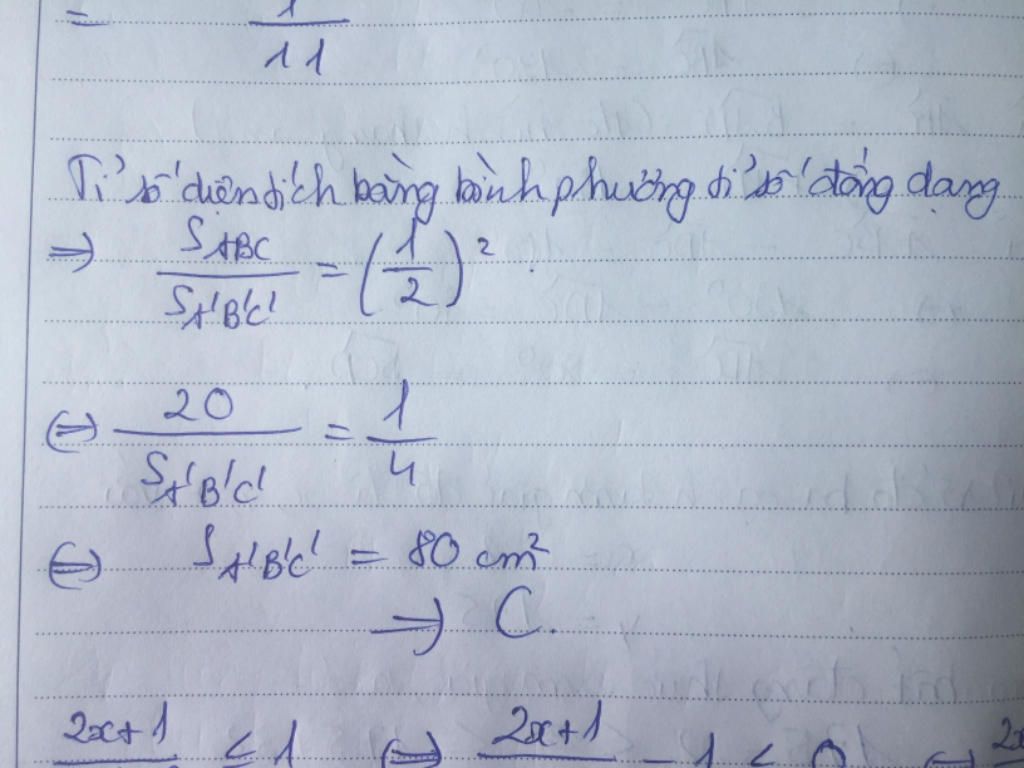 = 1/11
Tỉ số diện tích bằng bình phương tỉ số đồng dạng
=> S_ABC/S_A'B'C' = (1/2)²
<=> 20/S_A'B'C' = 1/4
<=> S_A'B'C' = 80 cm²
=> C.
2x+1 ≤ 1 <=> 2x+1 - 1 ≤ 0 <=> 2x